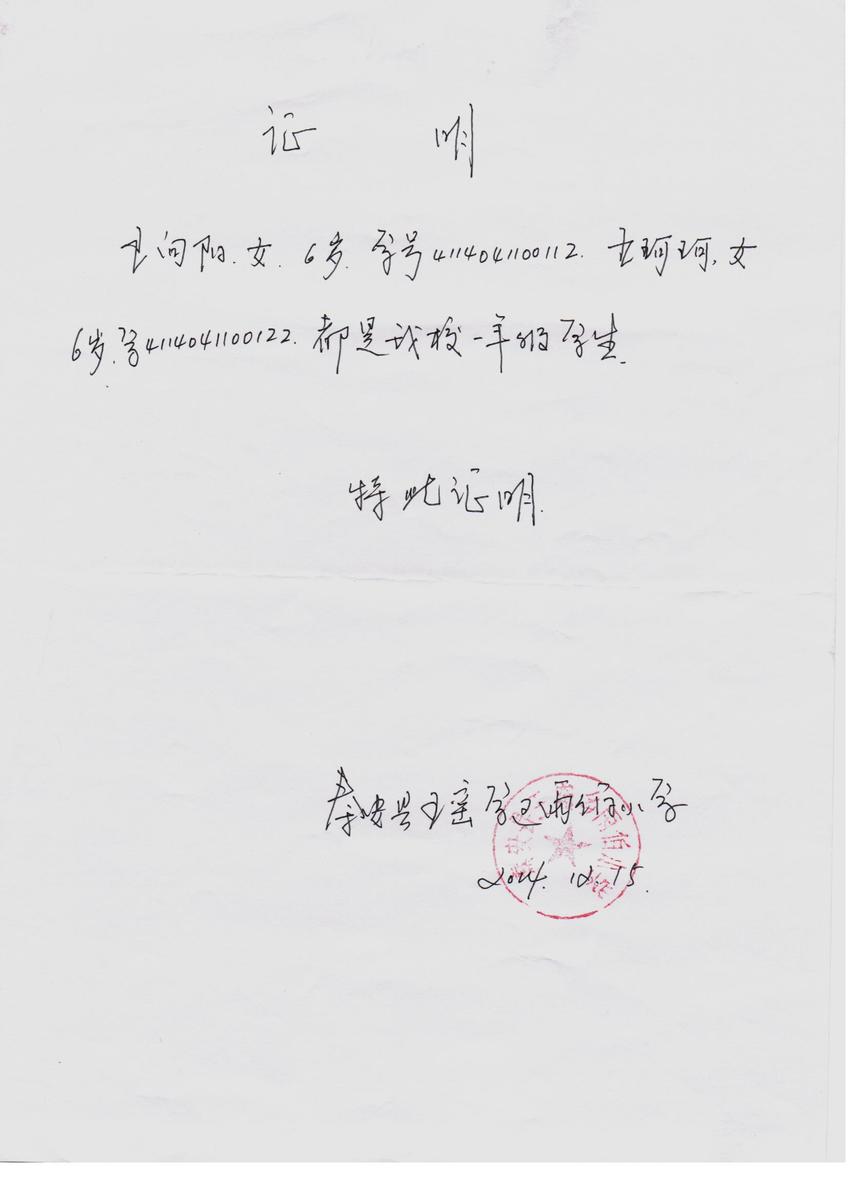 证 明
王向阳.女.6岁.学号4114041100112.王珂珂,女
6岁.学号4114041100122.都是我校一年级学生.
特此证明.
秦安县王窑学区
小学
12.15.